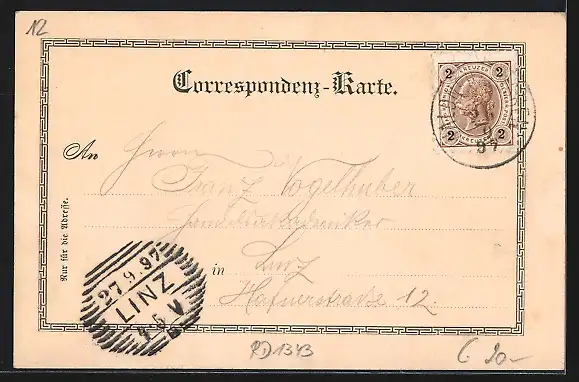 12
Correspondenz-Karte.
2 KREUZER 2
2 2
97
An Herrn
Franz Vogelhuber
Nur für die Adresse.
in Linz
Hafnerstraße 12.
27.9.97
LINZ
RD1343
C 20-